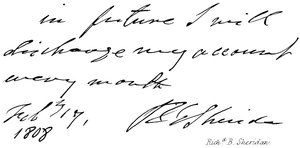 in future I will
discharge my account
every month
Feb 17,
1808
RBSheridan
Rich.d B. Sheridan.